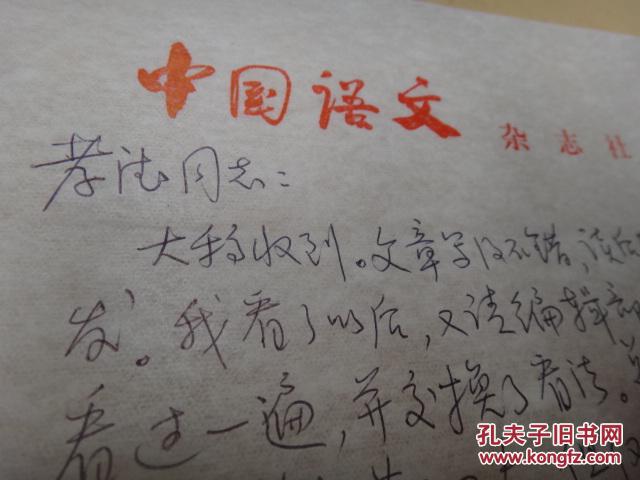 中国语文
杂志社
孝德同志：
大稿收到。文章写得不错，读后
发。我看了以后，又请编辑部
看过一遍，并交换了看法。
孔夫子旧书网
www.kongfz.com